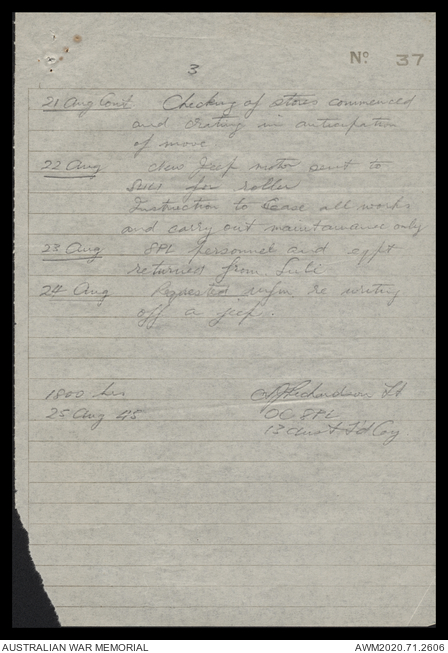 Nº 37
3
21 Aug Cont Checking of stores commenced
and crating in anticipation
of move
22 Aug New Jeep motor sent to
for roller
Instruction to cease all works
and carry out maintainance only
23 Aug 8PL personnel and eqpt
returned from
24 Aug Requested infm re writing
off a jeep.
1800 hrs Richardson Lt
25 Aug 45 OC 8PL
13 Aust Fd Coy
AUSTRALIAN WAR MEMORIAL AWM2020.71.2606